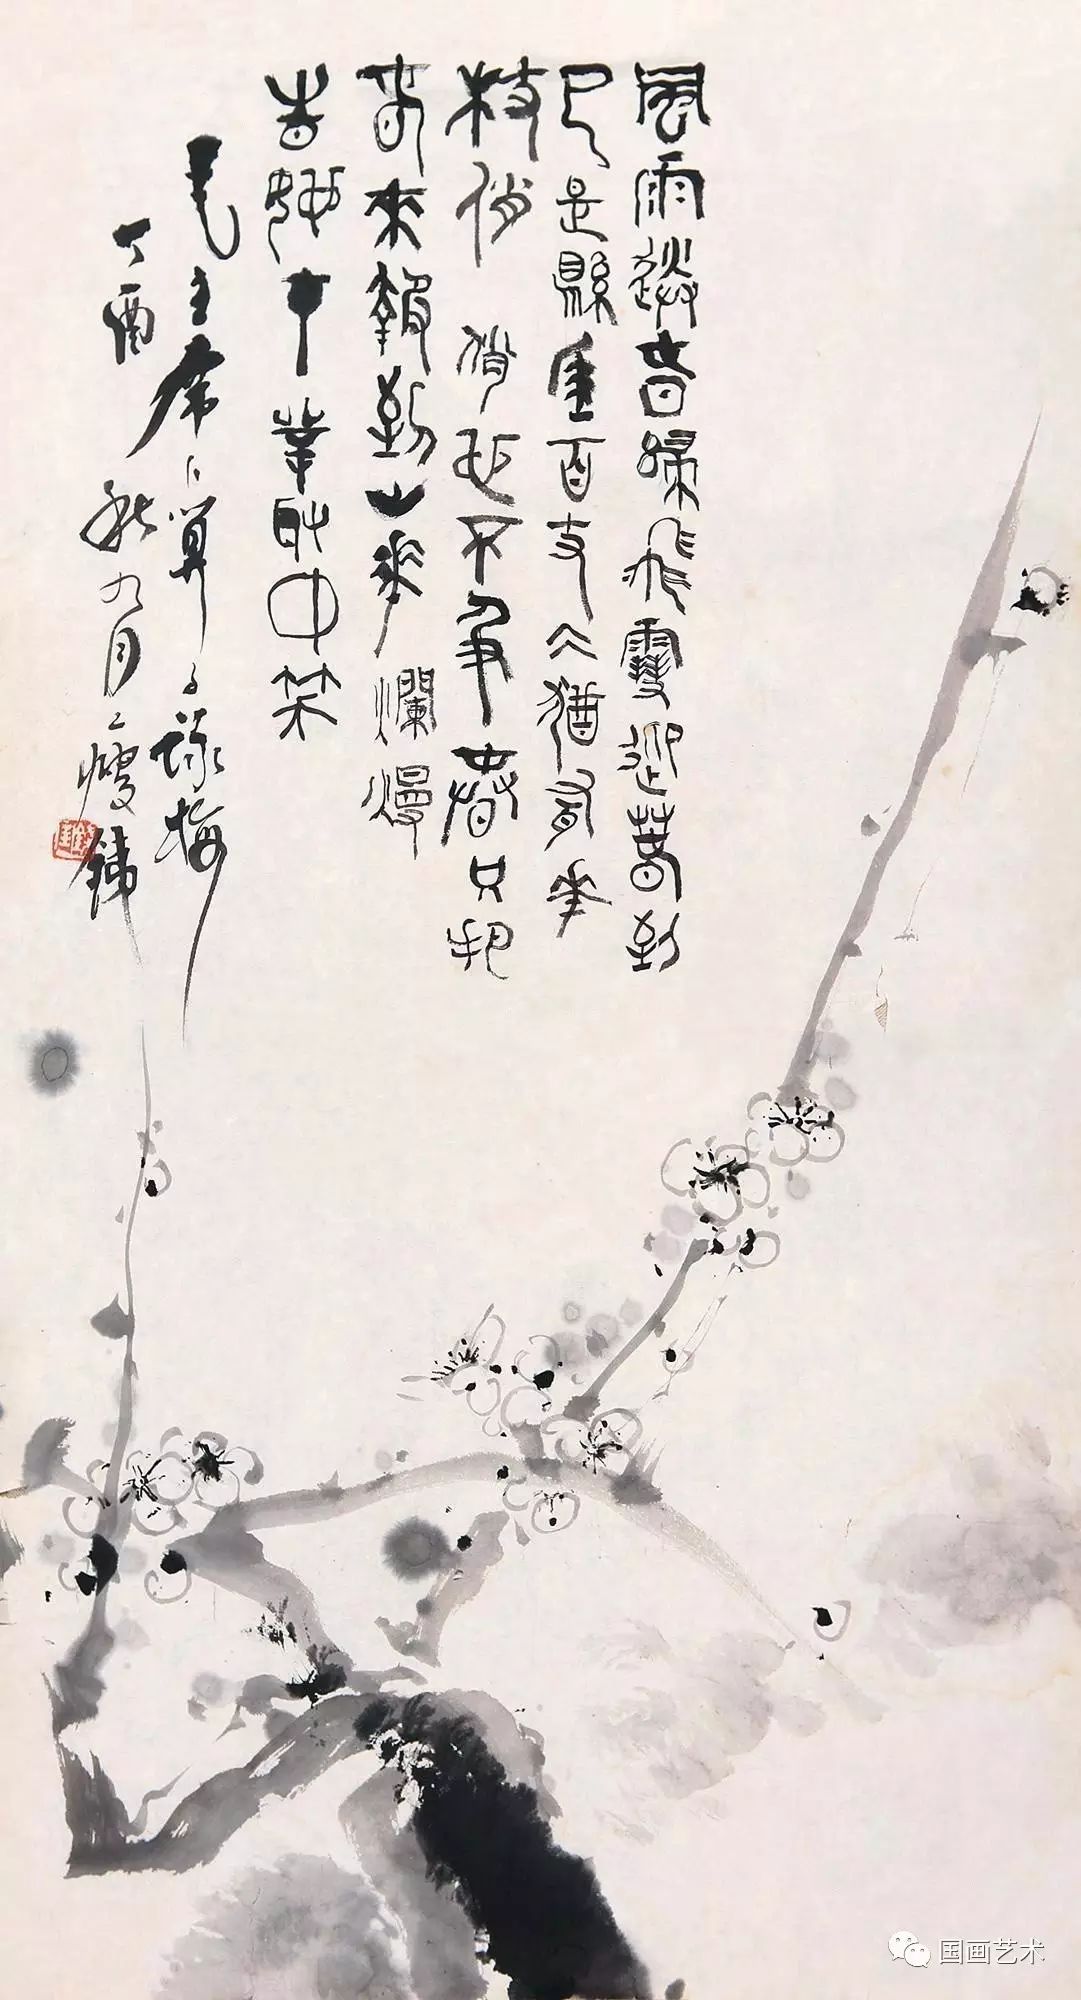 風雨送春歸飛雪迎春到
已是縣崖百丈冰猶有花
枝俏 俏也不爭春只把
春來報到山花爛熳
時她在叢中笑
毛主席卜算子詠梅
丁酉秋九月瘦鐵
国画艺术